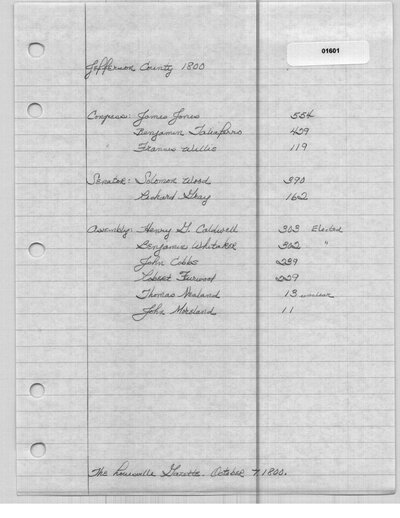 01601
Jefferson County 1800
Congress: James Jones 554
Benjamin Taliaferro 409
Francis Willis 119
Senator: Solomon Wood 390
Richard Gray 162
Assembly: Henry G. Caldwell 303 Elected
Benjamin Whitaker 302 "
John Cobbs 239
Robert 229
Thomas 13 unclear
John Moreland 11
The Louisville Gazette. October 7, 1800.